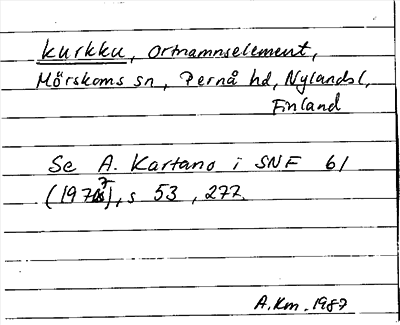 kurkku, Ortnamnselement,
Mörskoms sn, Pernå hd, Nylands l,
Finland
Se A. Kartano i SNF 61
s 53, 277.
A.Km. 1987